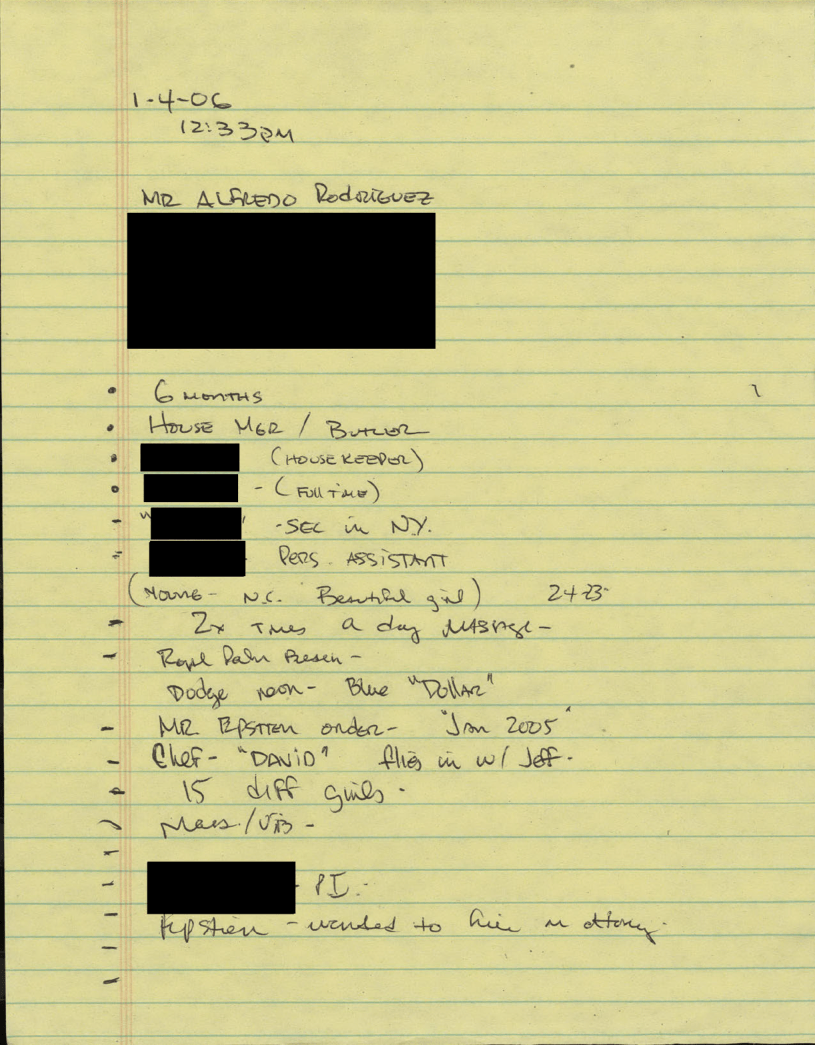 1-4-06
12:33PM
MR ALFREDO RODRIGUEZ
6 MONTHS
HOUSE MGR / BUTLER
(HOUSEKEEPER)
- (FULL TIME)
" ' - SEC in N.Y.
PERS. ASSISTANT
(YOUNG - N.C. Beautiful girl) 24-23
2x TIMES a day MASSAGE -
Royal Palm -
Dodge neon - Blue "DOLLAR"
MR EPSTIEN ORDER - "Jan 2005"
Chef - "DAVID" flies in w/ Jeff -
15 diff girls -
Mass./VIB -
- PI. -
Epstien - wanted to hire